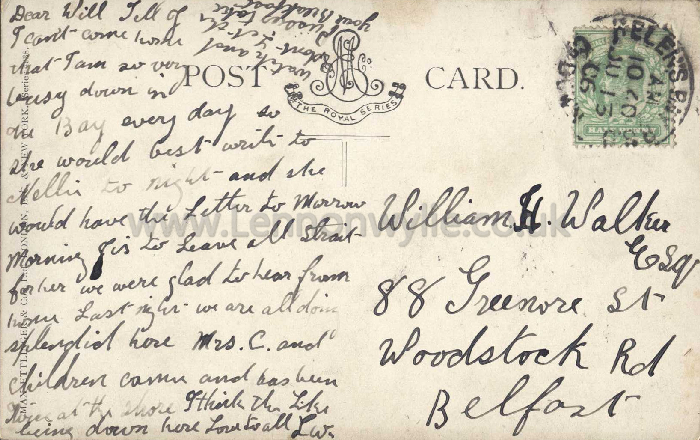 Dear Will Tell
I can't come home
that I am so very
busy down in
the Bay every day so
she would best write to
Nellie to night and she
would have the Letter to Morrow
Morning Jis to Leave all Strait
for her we were glad to hear from
home Last night we are all doing
splendid here Mrs. C. and
children came and has been
Twice at the shore I think the Like
being down here Love to all L.W.
your Breakfast
POST CARD.
THE ROYAL SERIES
HALFPENNY
HELEN'S BAY
10 20 AM
JU 13
06
William H. Walker
Esq
88 Greenore St
Woodstock Rd
Belfast
www.Lennonwylie.co.uk